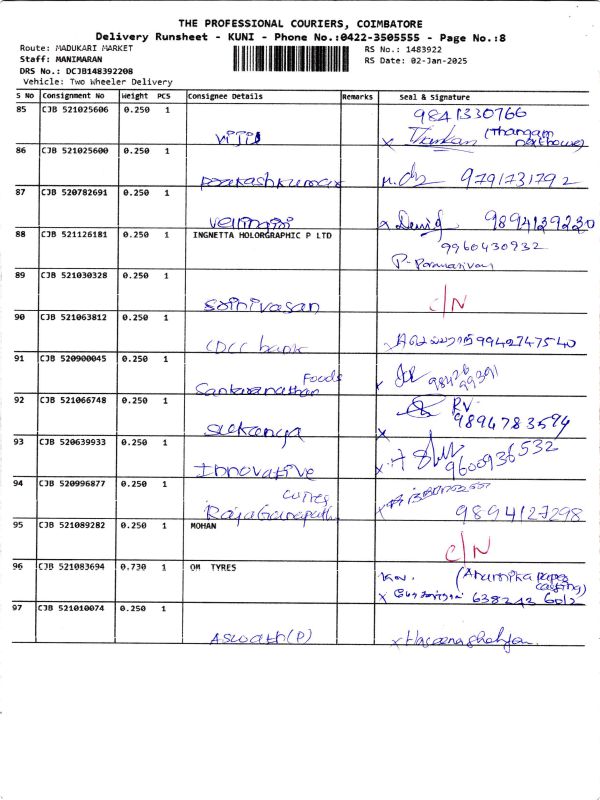 THE PROFESSIONAL COURIERS, COIMBATORE
Delivery Runsheet - KUNI - Phone No.:0422-3505555 - Page No.:8
Route: MADUKARI MARKET
RS No.: 1483922
Staff: MANIMARAN
RS Date: 02-Jan-2025
DRS No.: DCJB148392208
Vehicle: Two Wheeler Delivery
S No Consignment No Weight PCS Consignee Details Remarks Seal & Signature
85 CJB 521025606 0.250 1
9841330766
Viji x (Thangam
86 CJB 521025600 0.250 1
Prakashkumar 9791731792
87 CJB 520782691 0.250 1
x 9894139230
88 CJB 521126181 0.250 1 INGNETTA HOLORGRAPHIC P LTD
9960430932
89 CJB 521030328 0.250 1
Srinivasan C/N
90 CJB 521063812 0.250 1
CDCC bank 9942747540
91 CJB 520900045 0.250 1
Foods
Sankaranathan
92 CJB 521066748 0.250 1
RV.
Sukanya x 9894783594
93 CJB 520639933 0.250 1
Innovative x 9600936532
94 CJB 520996877 0.250 1
RajaGanapathy 9894127298
95 CJB 521089282 0.250 1 MOHAN
C/N
96 CJB 521083694 0.730 1 OM TYRES
x 638242 6012
97 CJB 521010074 0.250 1
Aswath(P) x